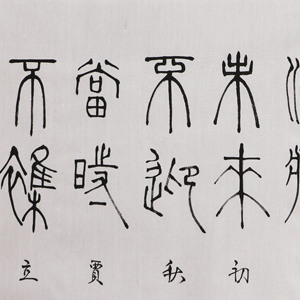 未來
不迎
當時
不雜
初秋賈立